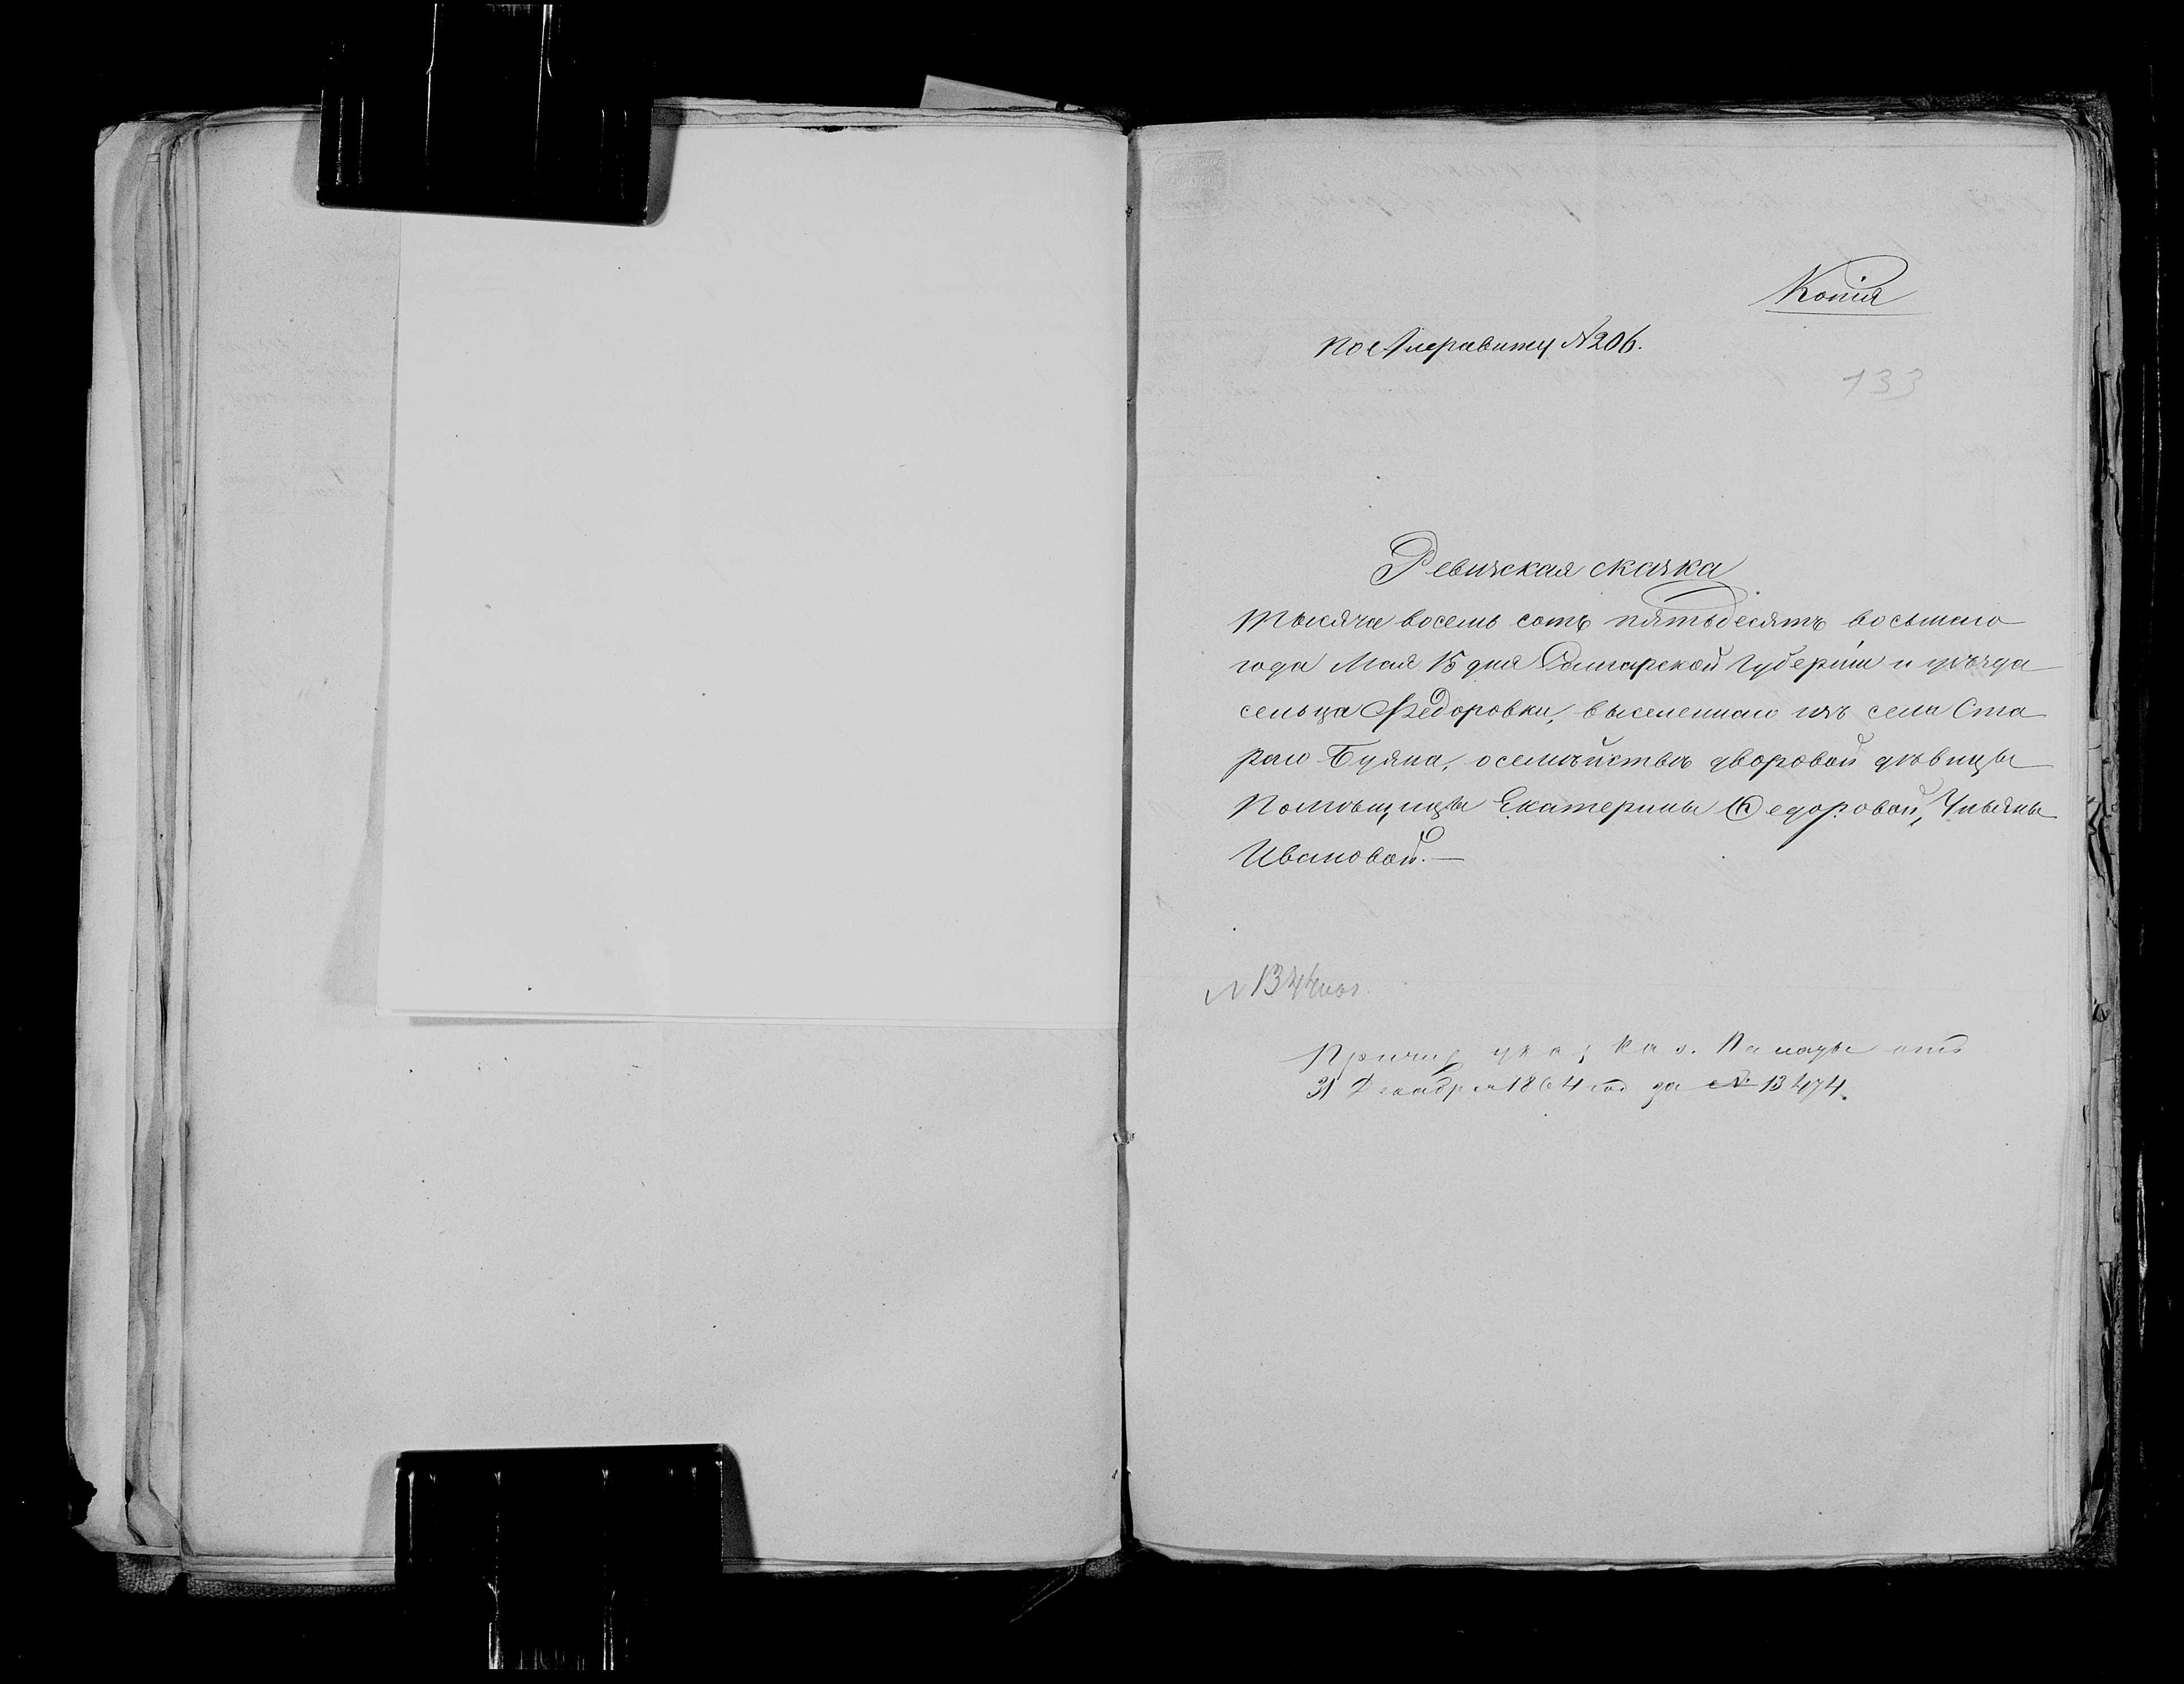 Копія
По Алфавиту №206.
133
Ревизская сказка
Тысяча восемь сотъ пятьдесятъ восьмаго
года Мая 15 дня Самарской Губерніи и уѣзда
сельца Федоровки, выселеннаго изъ села Ста
раго Буяна, о семѣйствѣ дворовой дѣвицы
Помѣщицы Екатерины Федоровой, Ульяны
Ивановой.—
№ 1344
Причис указ Каз. Палаты отъ
31 Декабря 1864 год за № 13474.